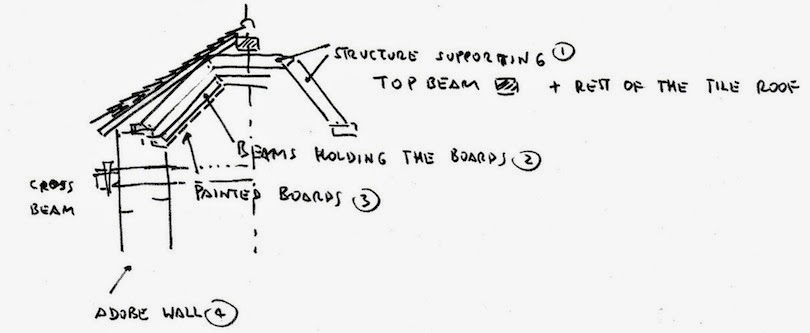 STRUCTURE SUPPORTING 1
TOP BEAM + REST OF THE TILE ROOF
BEAMS HOLDING THE BOARDS 2
PAINTED BOARDS 3
CROSS
BEAM
ADOBE WALL 4